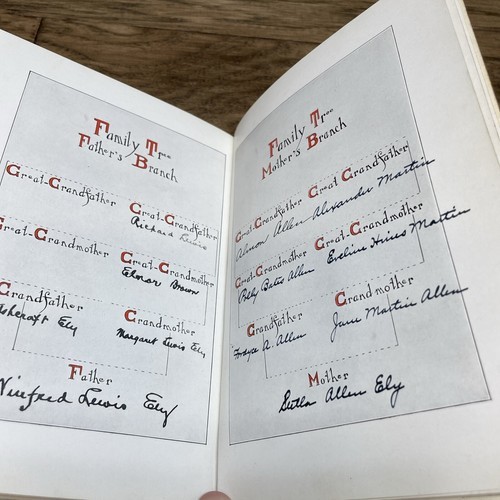 Family Tree
Father's Branch
Great-Grandfather
Great-Grandfather
Richard Lewis
Great-Grandmother
Great-Grandmother
Elonor Brown
Grandfather
Ashcraft Ely
Grandmother
Margaret Lewis Ely
Father
Winfred Lewis Ely
Family Tree
Mother's Branch
Great-Grandfather
Alinson Allen
Great Grandfather
Alexander Martin
Great-Grandmother
Polly Bates Allen
Great-Grandmother
Eveline Hines Martin
Grandfather
Fordyce A. Allen
Grandmother
Jane Martin Allen
Mother
Allen Ely